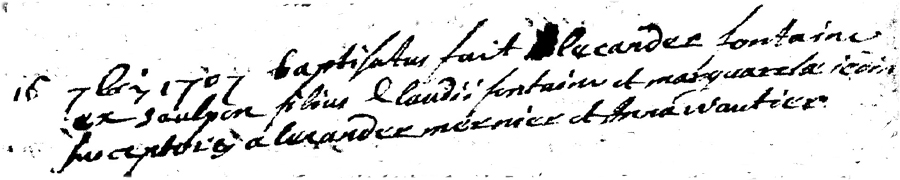 16 7bris 1707 baptisatus fuit Alexander fontaine
ex saulpon filius Claudii fontaine et marguareta
susceptores alexander mernier et Anna wautier